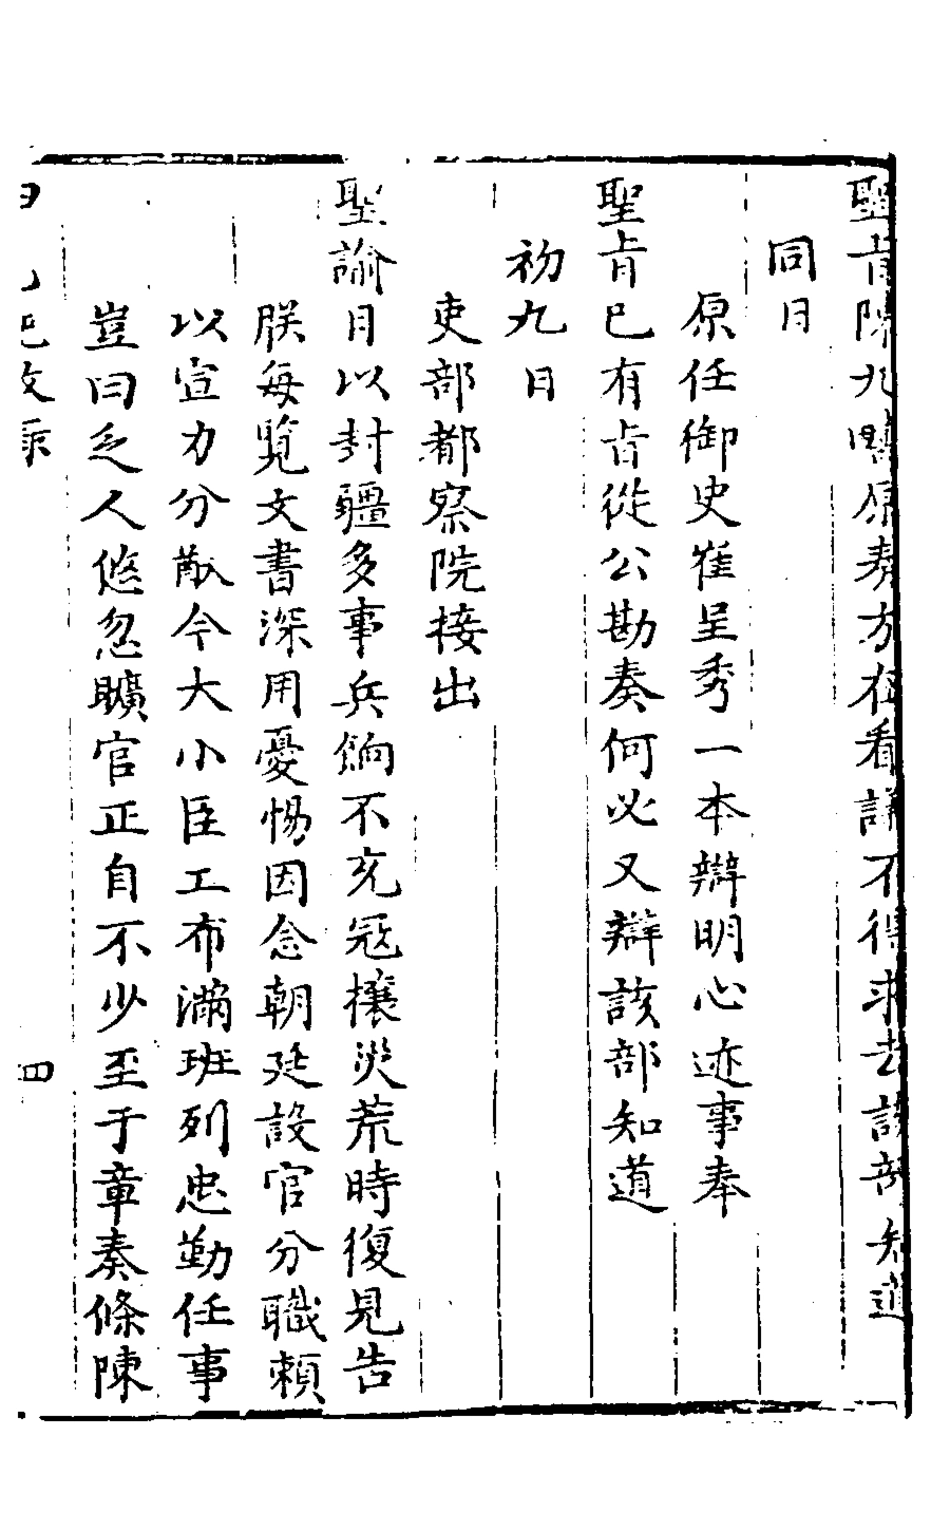 聖旨陳九疇原奏方在看議不得求去該部知道
同日
原任御史崔呈秀一本辯明心迹事奉
聖旨已有旨從公勘奏何必又辯該部知道
初九日
吏部都察院接出
聖諭目以封疆多事兵餉不充寇攘災荒時復見告
朕每覽文書深用憂惕因念朝廷設官分職賴
以宣力分猷今大小臣工布滿班列忠勤任事
豈曰乏人悠忽曠官正自不少至于章奏條陳
四